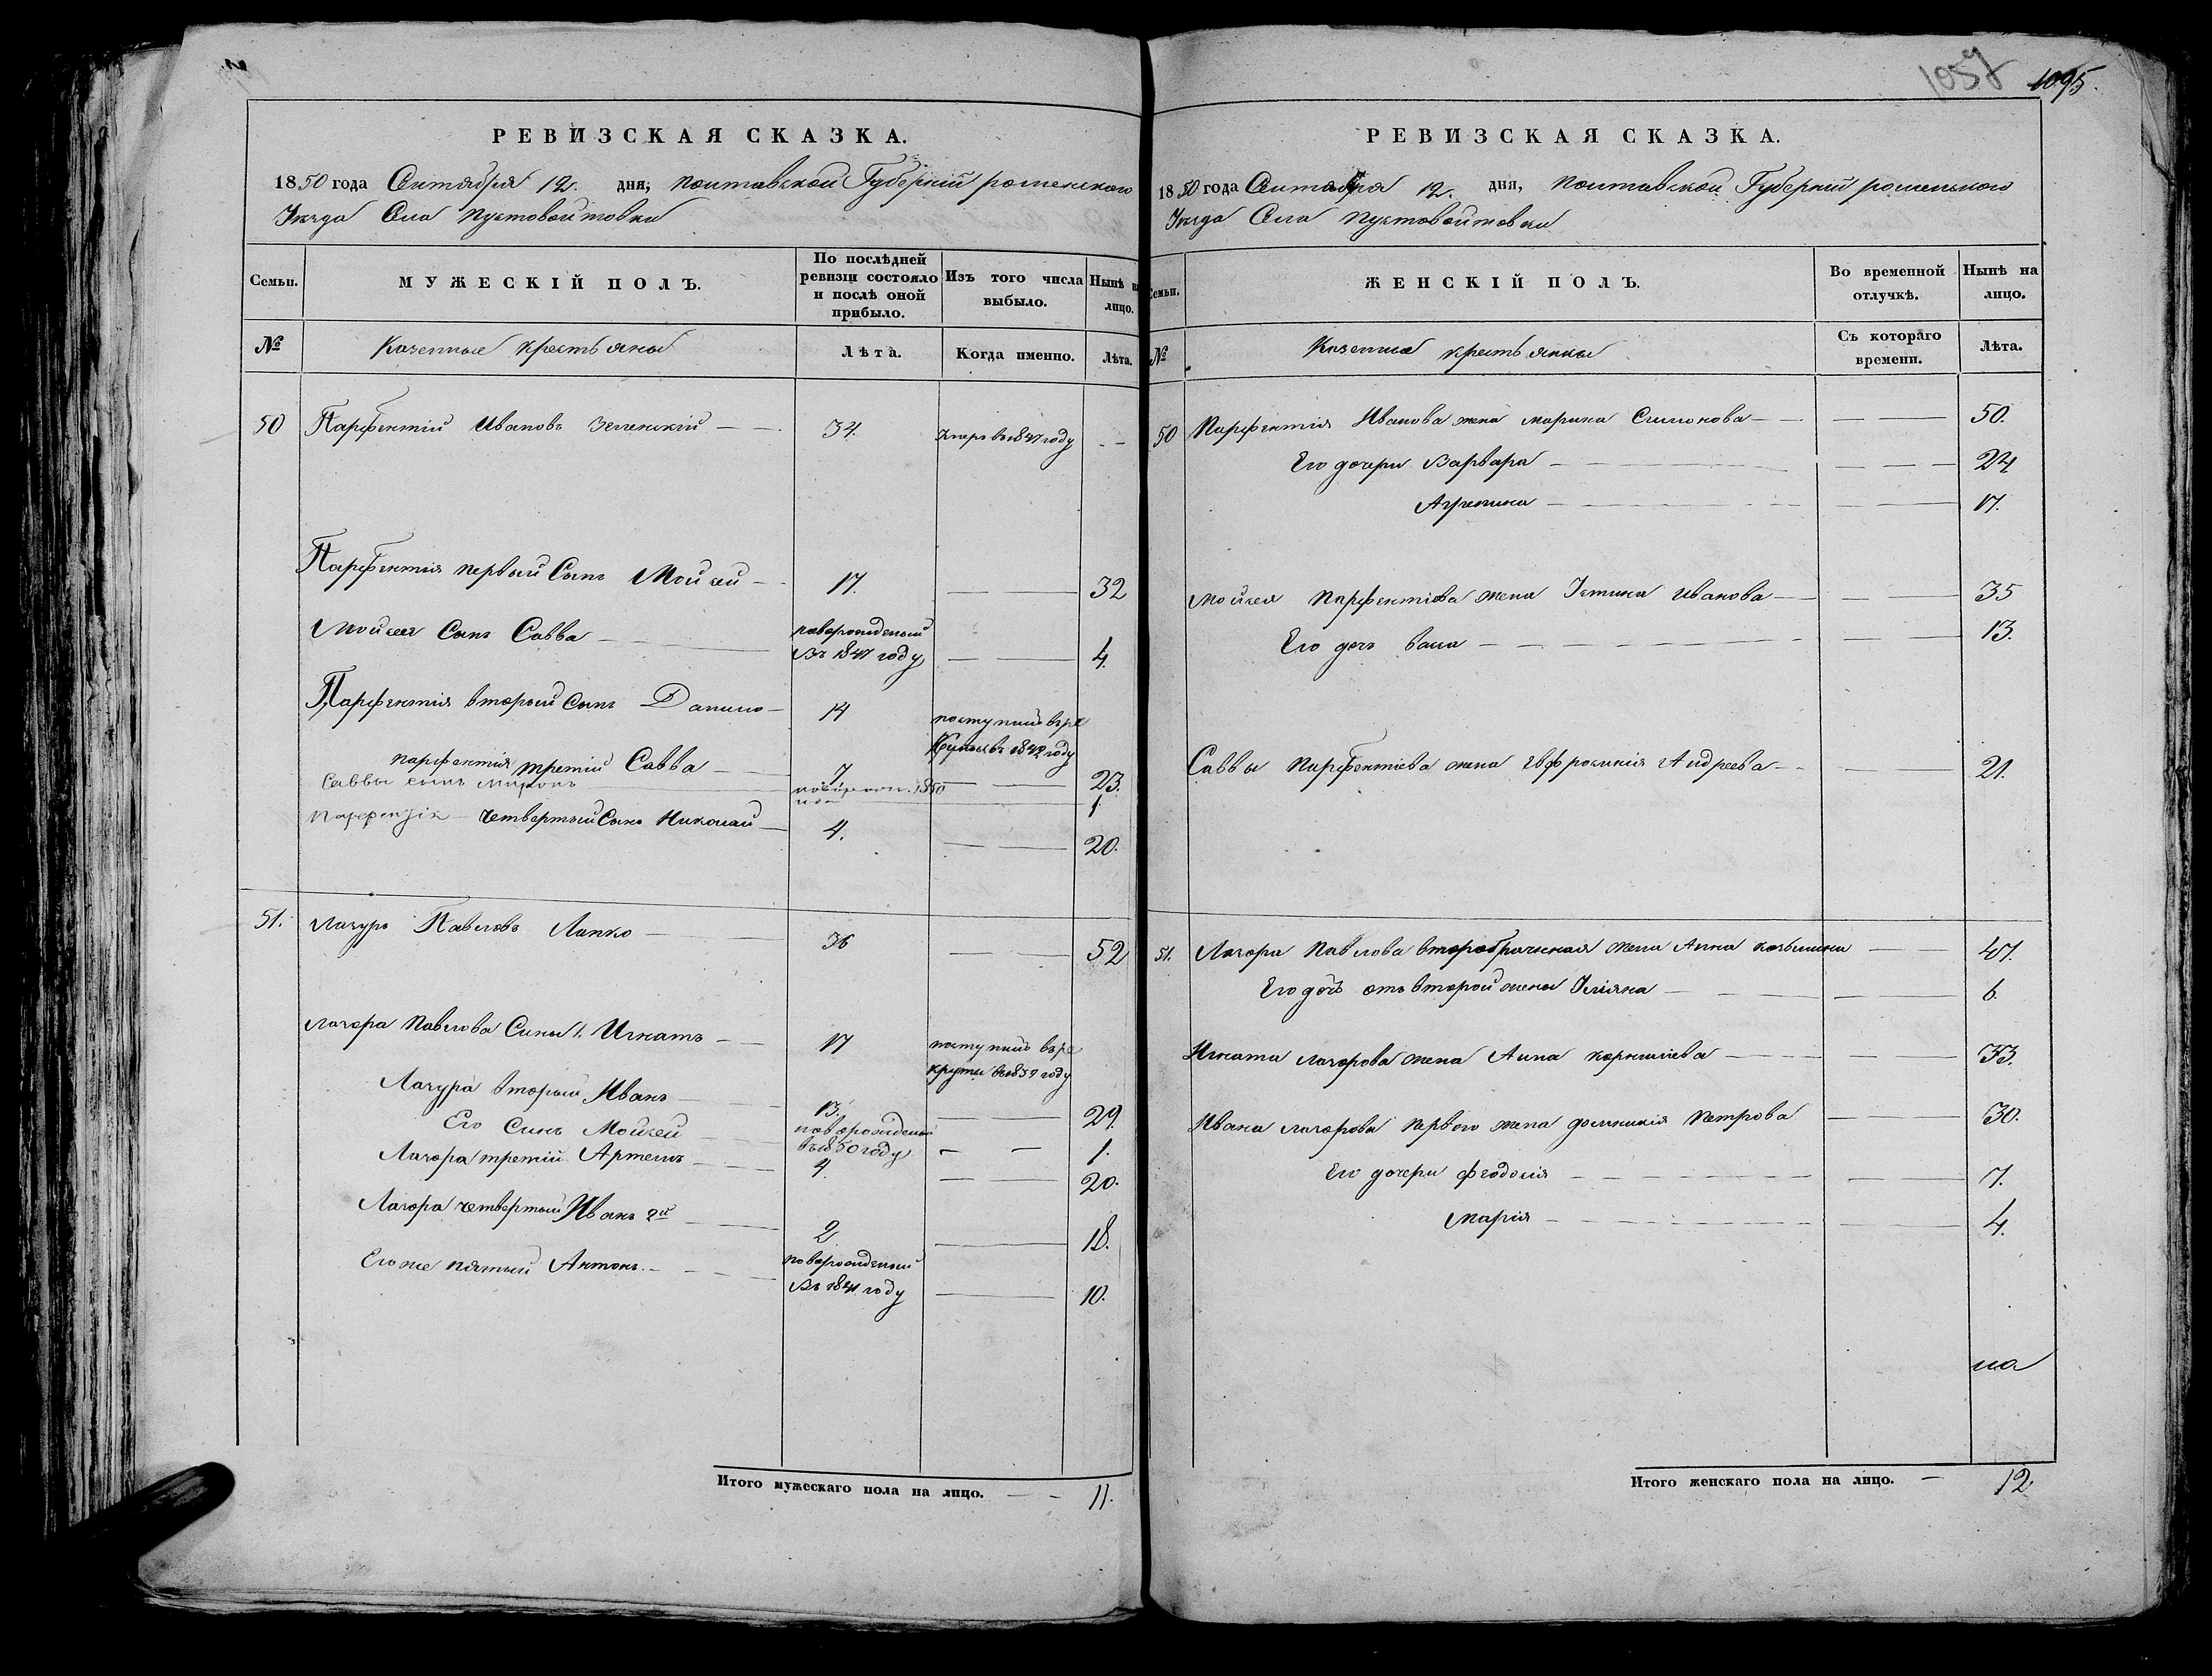 1057 1095.
РЕВИЗСКАЯ СКАЗКА.
1850 года Сентября 12. дня, полтавской Губерніи роменского
Уезда Села пустовойтовки
Семьи.
МУЖЕСКІЙ ПОЛЪ.
По послѣдней ревизіи состояло и послѣ оной прибыло.
Изъ того числа выбыло.
Нынѣ на лицо.
№
Казенные крестьяны
Лѣта.
Когда именно.
Лѣта.
50 Парфентій Ивановъ Зеленскій 34. Умеръ въ 1847 году
Парфентія первый Сынъ Мойсей 17. 32
Мойсея Сынъ Савва новорожденый
Въ 1847 году 4.
Парфентія вторый Сынъ Данило 14 поступилъ въ ре
круты въ 1842 году
парфентія третій Савва 7 23.
Саввы сынъ Миронъ новорожд. 1850
года 1
Парфентія четвертый Сынъ Николай 4. 20.
51. Лазуръ Павловъ Лапко 36 52
Лазора Павлова Сыны 1. Игнатъ 17 поступилъ въ ре
круты въ 1839 году
Лазура вторый Иванъ 13. 29.
Его Синъ Мойсей новорожденый
въ 1850 году 1.
Лазора третій Артемъ 4. 20.
Лазора четвертый Иванъ 2й 2 18.
Его же пятый Антонъ новорожденый
Въ 1841 году 10.
Итого мужескаго пола на лицо. 11.
РЕВИЗСКАЯ СКАЗКА.
1850 года Сентября 12. дня, полтавской Губерніи роменского
Уезда Села пустовойтовки
Семьи.
ЖЕНСКІЙ ПОЛЪ.
Во временной отлучкѣ.
Нынѣ на лицо.
№
Казенные крестьянки
Съ котораго времени.
Лѣта.
50 Парфентія Иванова жена марина Симонова 50.
Его дочери Варвара 24
Агрепина 17.
Мойсея Парфентіева жена Устина Иванова 35
Его дочь 13.
Саввы Парфентіева жена Евфросинія Андреева 21.
51. Лазора Павлова второбрачная жена Анна козьмина 47.
Его дочь отъ второй жены Уліяна 6.
Игната Лазорова жена Анна корниліева 33.
Ивана Лазорова первого жена домникія Петрова 30.
Его дочери Феодосія 7.
Марія 4.
на
Итого женскаго пола на лицо. 12